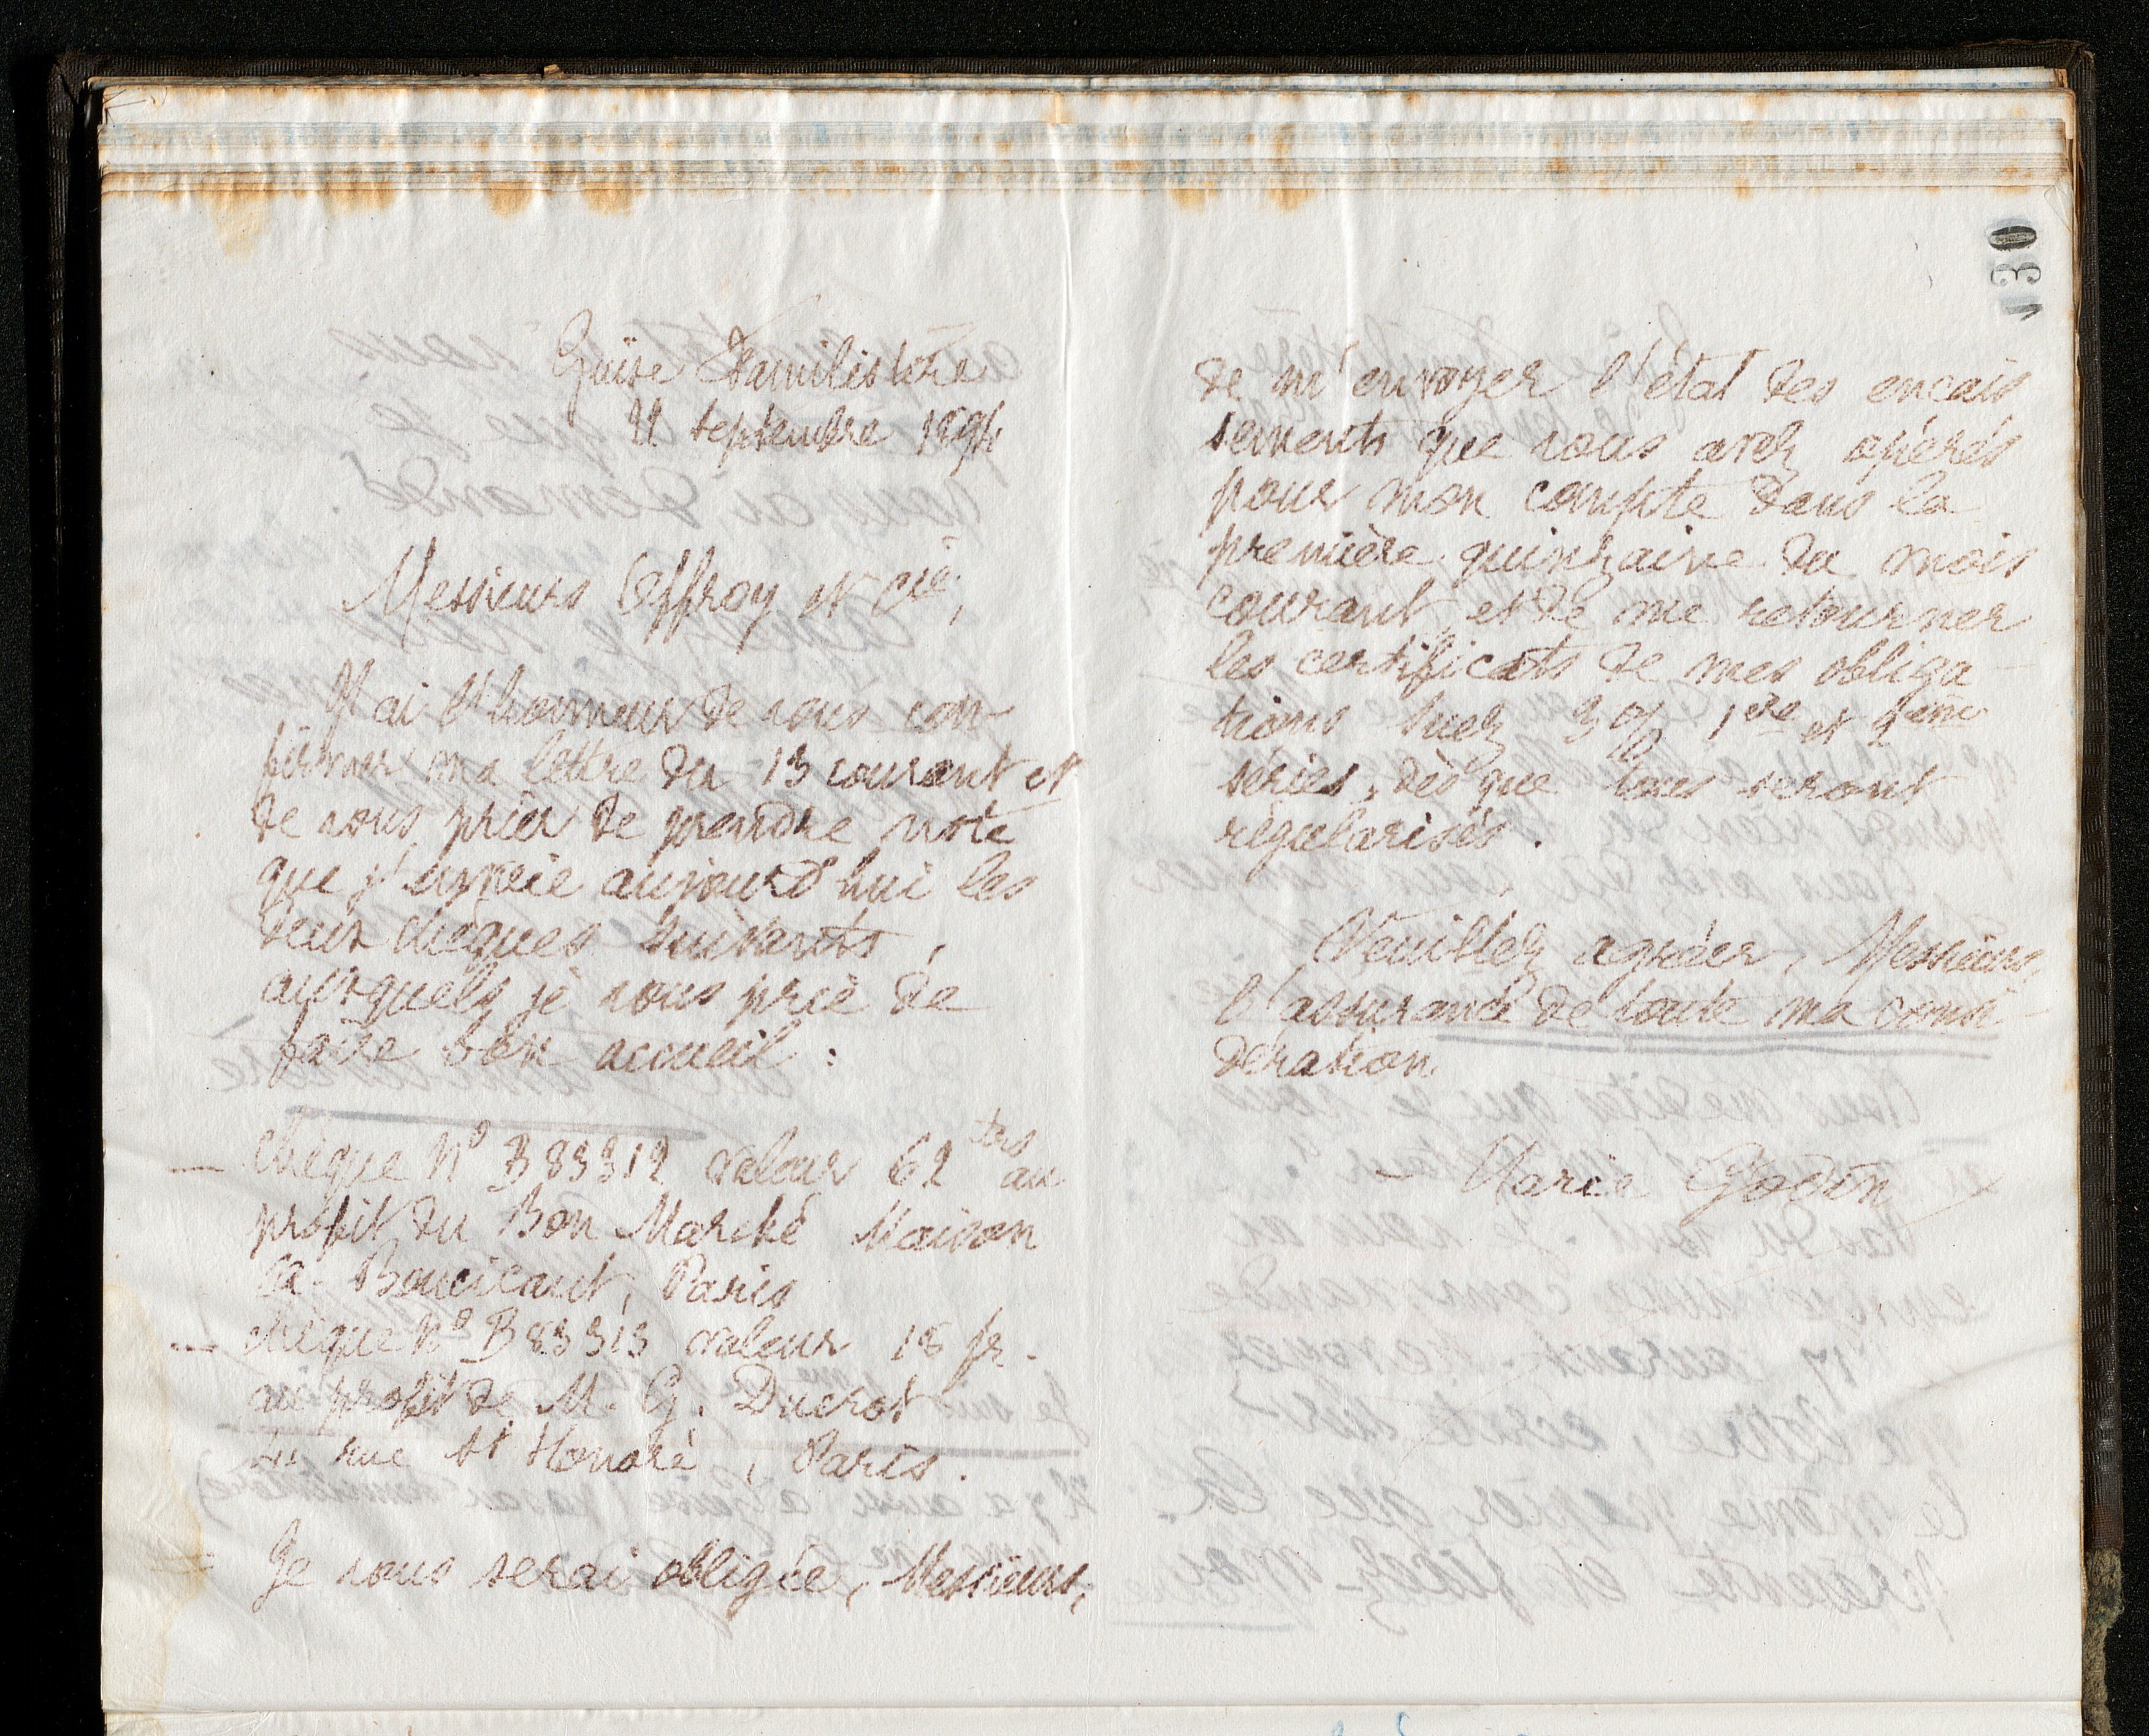 130
Guise Familistère
21 septembre 1894
Messieurs Offroy et Cie,
J'ai l'honneur de vous con
firmer ma lettre du 13 courant et
de vous prier de prendre note
que j'envoie aujourd'hui les
deux chèques suivants,
auxquels je vous prie de
faire bon accueil :
— Chèque No B83312 valeur 62 au
profit du Bon Marché Maison
A. Boucicaut, Paris
— Chèque No B83313 valeur 18 fr.
au profit de M. G. Ducrot
rue St Honoré, Paris.
Je vous serai obligée, Messieurs,
de m'envoyer l'état des encais
sements que vous avez opérés
pour mon compte dans la
première quinzaine du mois
courant, et de me retourner
les certificats de mes obliga-
tions Suez 3% 1ère et 2ème
séries, dès que tous seront
régularisés.
Veuillez agréer, Messieurs,
l'assurance de toute ma consi-
dération.
Marie Godin